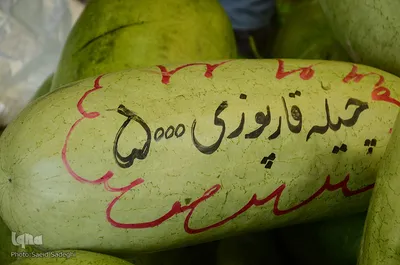 چیله قارپوزی ۵۰۰۰
iqna
Photo: Saeid Sadeghi